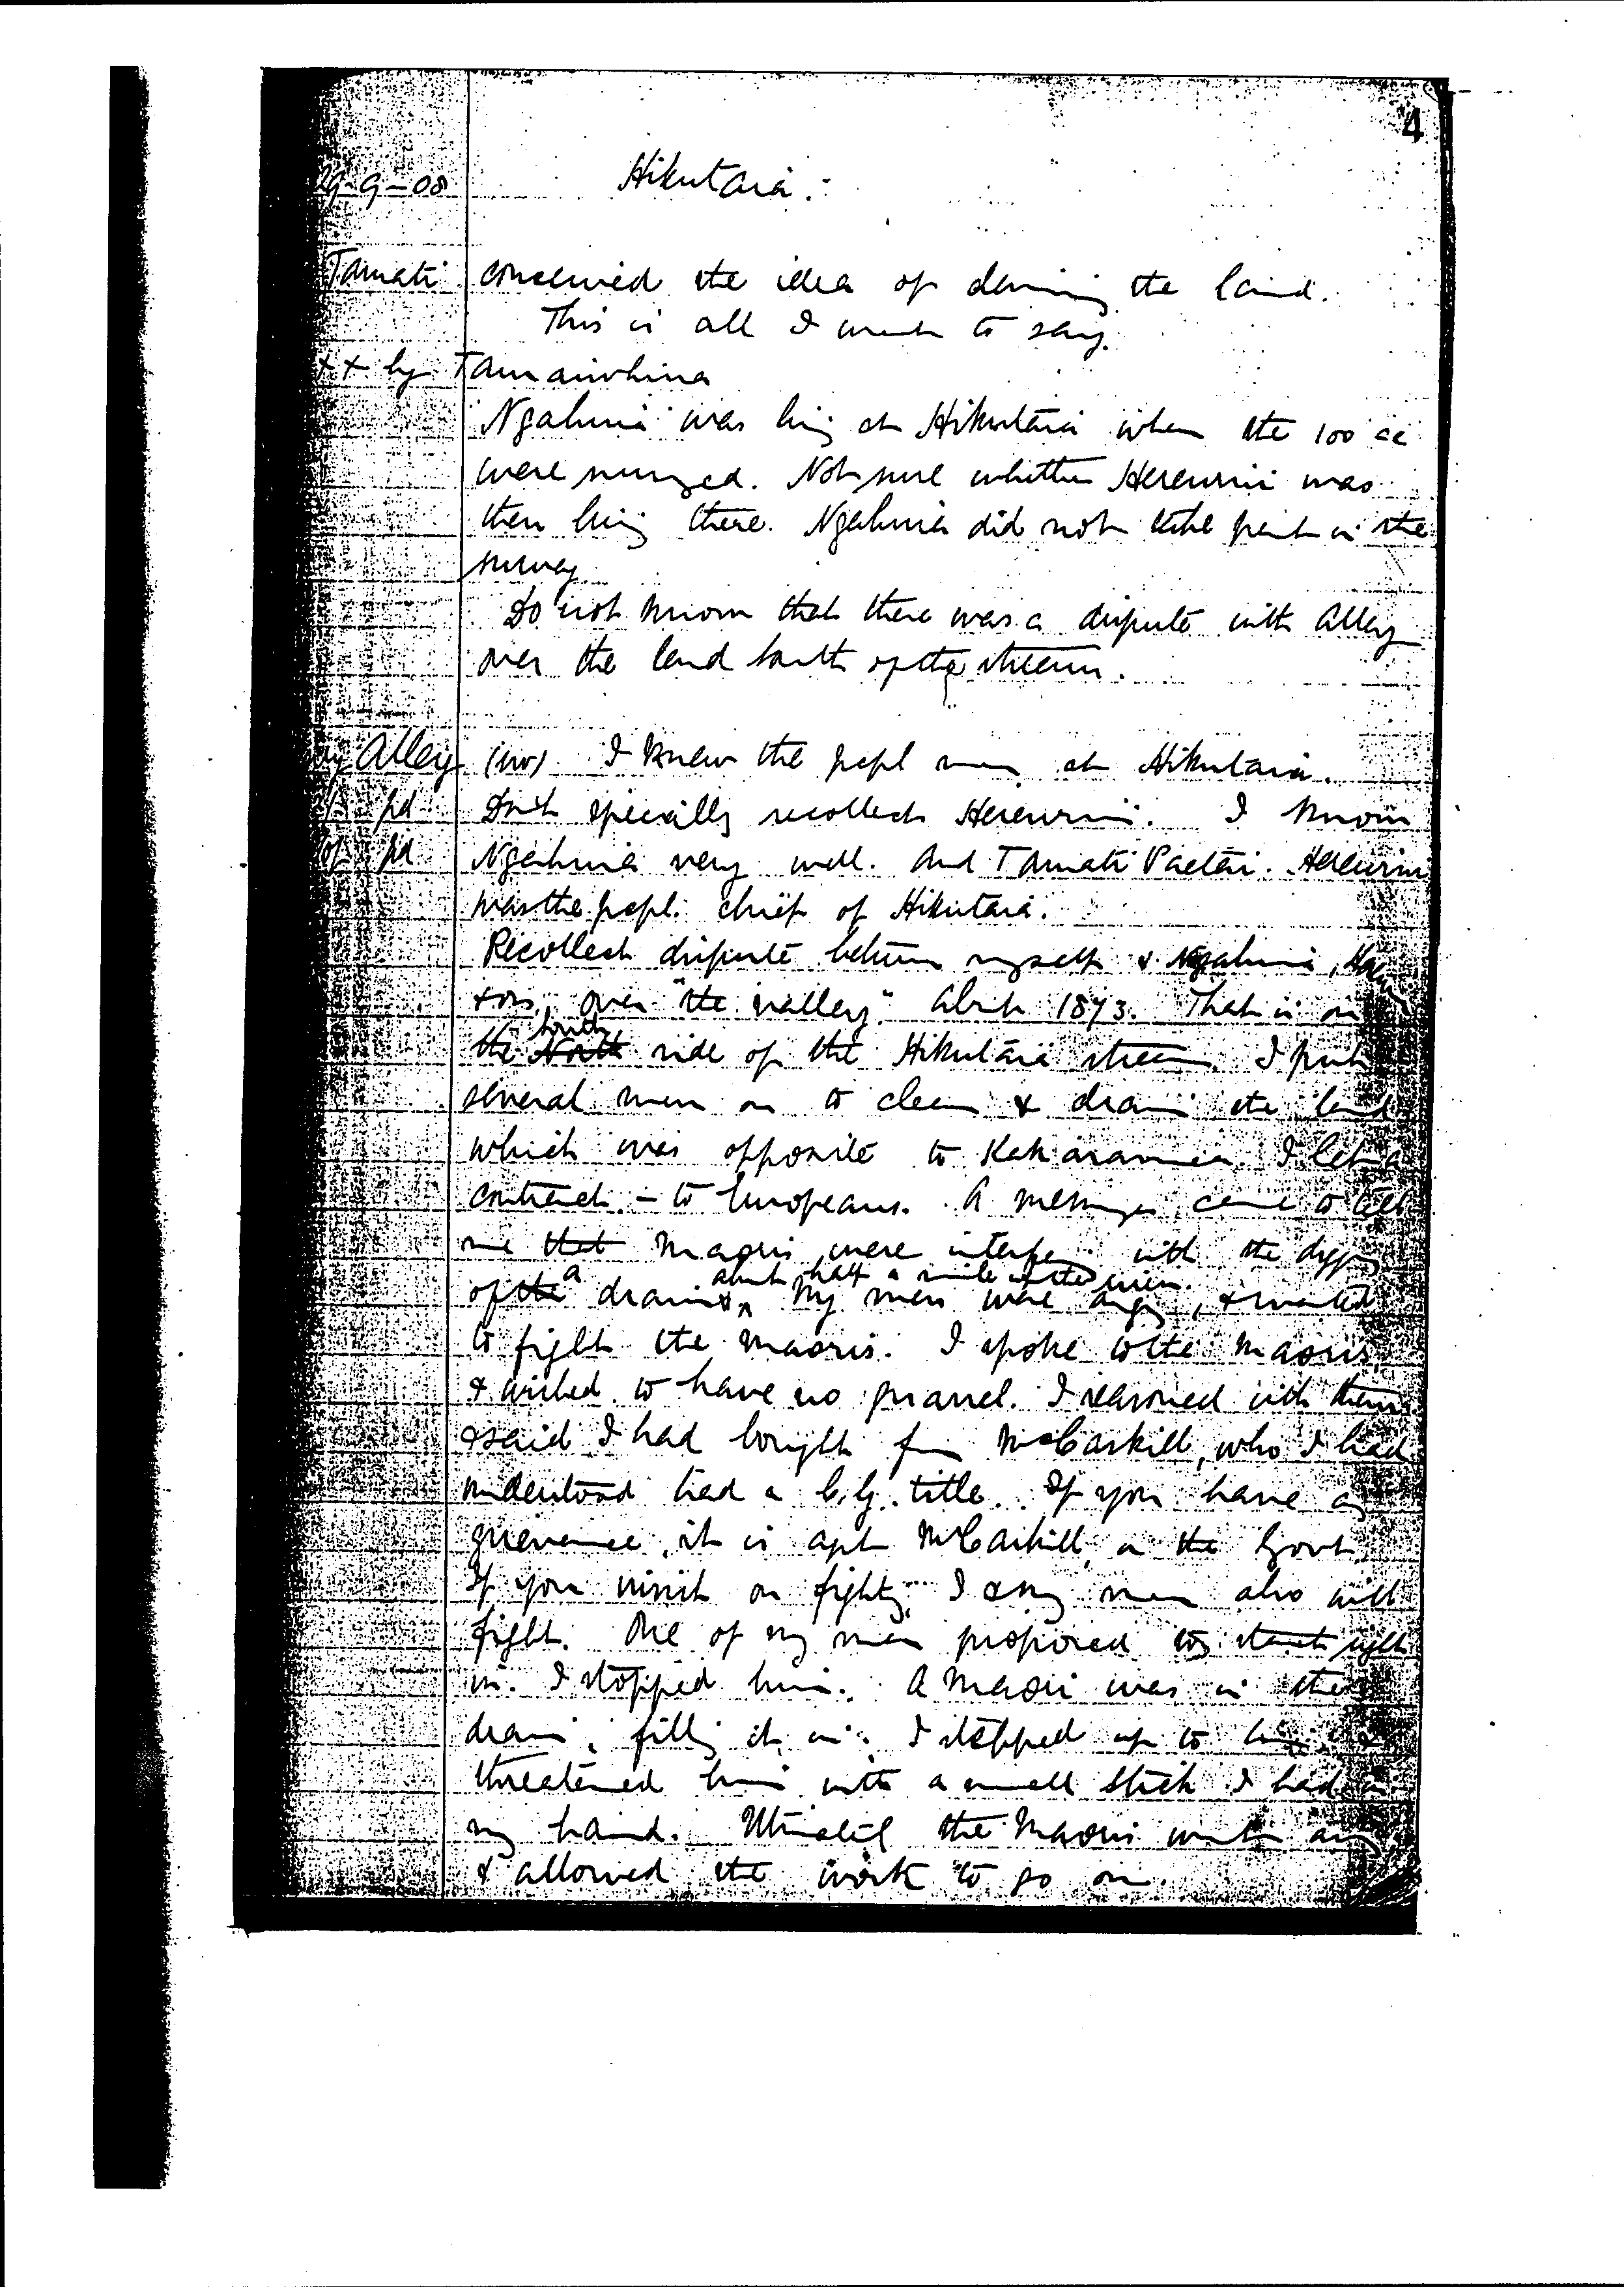 4
29-9-08 Hikutaia:
Tamati conceived the idea of claiming the land.
This is all I wish to say.
xx by Tamaiwhina
Ngahuia was living at Hikutaia when the 100 ac
were surveyed. Not sure whether Herewini was
then living there. Ngahuia did not take part in the
survey
Do not know that there was a dispute with Alley
over the land south of the stream.
Alley (sw) I knew the people at Hikutaia.
pd Don't specially recollect Herewini. I know
pd Ngahuia very well. And Tamati Paetai. Herewini
was the chief of Hikutaia.
Recollect dispute between myself & Ngahuia,
& ors, over "the valley" about 1873. That is on
the North south side of the Hikutaia stream. I put
several men on to clear & drain the land
which was opposite to I let a
contract - to Europeans. A messenger came to tell
me that Maoris were interfering with the digging
of the a drain about half a mile up the river. My men were angry, & wanted
to fight the Maoris. I spoke to the Maoris,
& wished to have no quarrel. I reasoned with them
& said I had bought from McCaskill, who I had
understood had a C.G. title. If you have any
grievance, it is agst McCaskill or the Govt.
If you insist on fighting, I & my men also will
fight. One of my men proposed to start right
in. I stopped him. A Maori was in the
drain, filling it in. I stepped up to him &
threatened him with a small stick I had in
my hand. the Maoris went away
& allowed the work to go on.